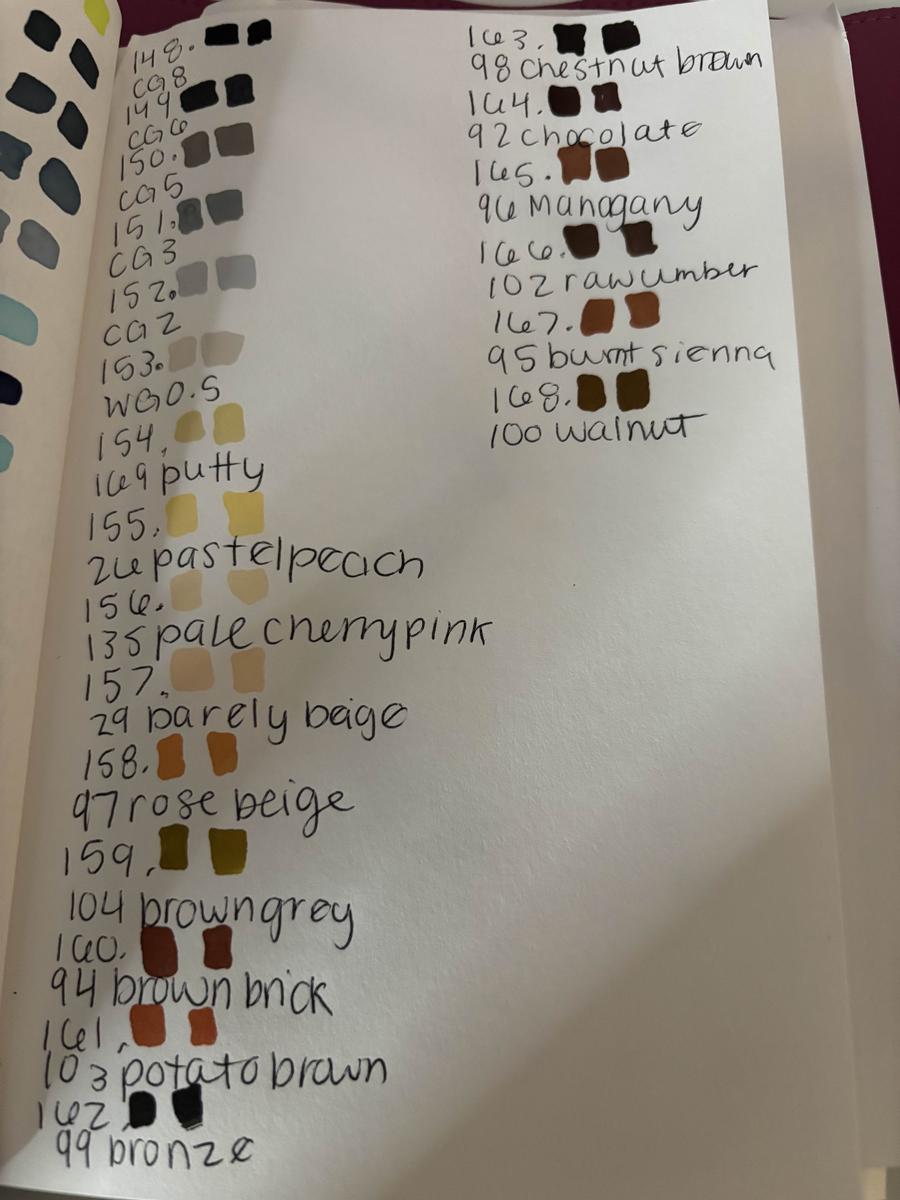 148.
CG8
149
CG6
150.
CG5
151.
CG3
152.
CG2
153.
WG0.5
154.
169 putty
155.
26 pastel peach
156.
135 pale cherry pink
157.
29 barely beige
158.
97 rose beige
159.
104 brown grey
160.
94 brown brick
161.
103 potato brown
162.
99 bronze
163.
98 chestnut brown
164.
92 chocolate
165.
96 Mahogany
166.
102 raw umber
167.
95 burnt sienna
168.
100 walnut